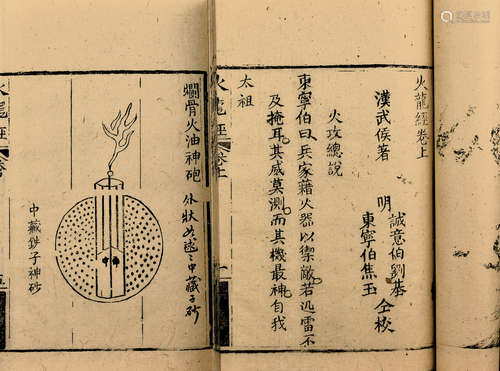 火龍經卷上
漢武侯著 明
誠意伯劉基
東寧伯焦玉
仝校
火攻總說
東寧伯曰兵家藉火器以禦敵若迅雷不
及掩耳其威莫測而其機最神自我
太祖
火龍經 卷上 一
爛骨火油神砲
外狀 中藏子砂
中藏鉄子神砂
火龍經
五